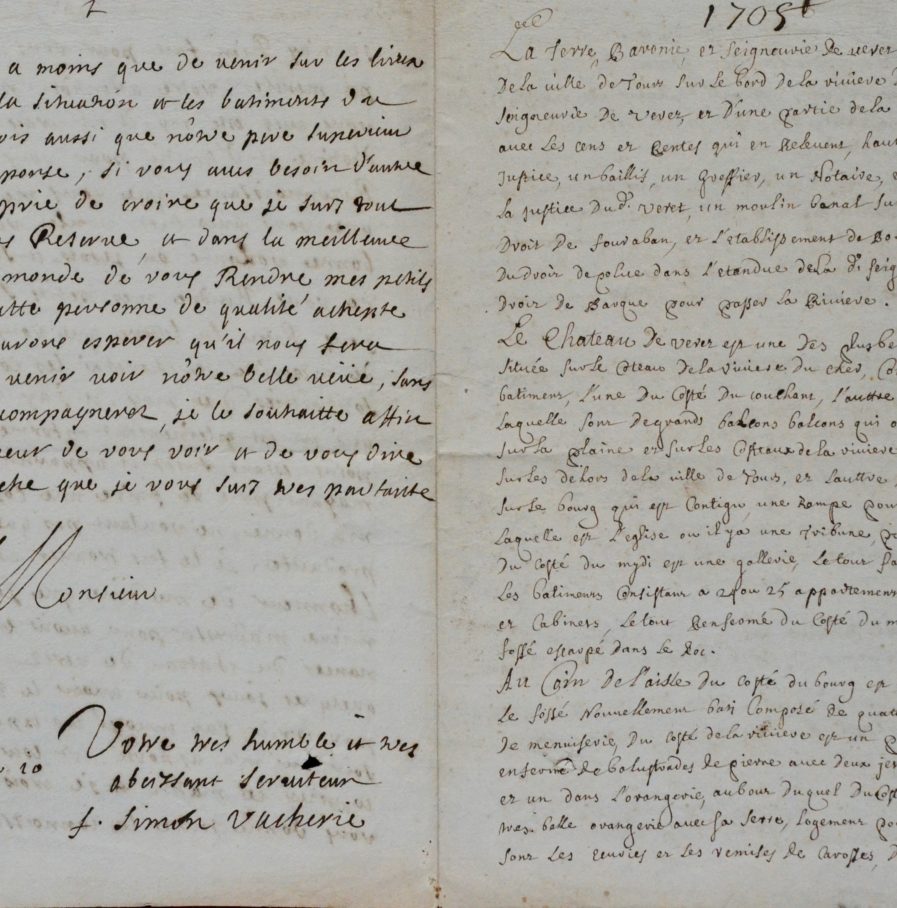 a moins que de venir sur les lieux
la situation et les batiments du
ois aussi que nôtre pere superieur
ponse, si vous aues besoin d'autre
prie de croire que je suis tout
Reserue et dans la meilleure
monde de vous Rendre mes petits
ette personne de qualité achepte
aurons esperer qu'il nous fera
venir voir nôtre belle veüë, sans
compagneret, je le souhaitte affin
eur de vous voir et de vous dire
che que je vous suis tres parfaite
Monsieur
Votre tres humble et tres
10 obeissant seruiteur
f. Simon Vacherie
1705
La Terre, Baronie, et Seigneurie de veret
De la ville de Tours sur le bord de la riviere
Seigneurie De Veret, et D'une partie de la
avec Les cens et Rentes qui en Relevent, haut
Justice, un baillif, un Greffier, un Notaire,
La justice Dud. Veret, un moulin banal su
Droit De fouraban, et L'etablissement de Bo
Du droit de police dans L'etandue de la d. Seig
Droit De Barque pour passer La Riviere.
Le Chateau De veret est une des plus be
Située sur le Coteau de la riviere du cher,
batiment, L'une Du Costé Du couchant, L'auttre
Laquelle sont de grands balcons balcons qui o
sur la plaine et sur les Costeaux de la riviere
sur les dehors de la ville de Tours, et Lauttre
sur le bourg qui est Contigu, une Rampe pou
Laquelle est L'eglise ou il ya une Tribune,
Du costé du mydi est une gallerie, Le tour
Les batimens Consistant a 24 ou 25 appartemens
et Cabinets, Le tout Renfermé Du Costé du m
fossé escarpé dans Le Roc.
Au Coin De l'aisle Du costé du bourg est
Le fossé Nouvellement bati Composé de quat
De menuiserie, Du costé de la riviere est un
enfermé de balustrades de pierre avec deux je
et un dans L'orangerie, au bout du quel Du Cost
tres belle orangerie avec sa serre, Logement po
sont Les ecuries et Les remises de Carosses,